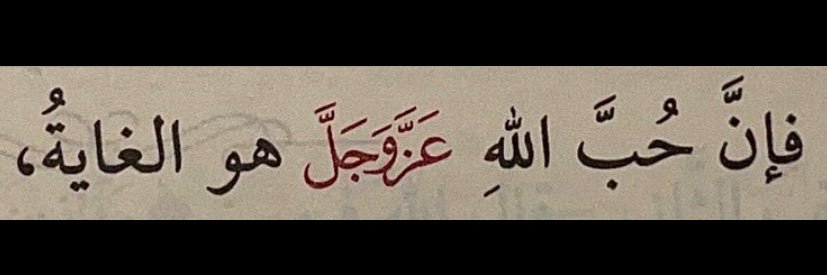 فإنَّ حُبَّ اللهِ عَزَّوَجَلَّ هو الغايةُ،